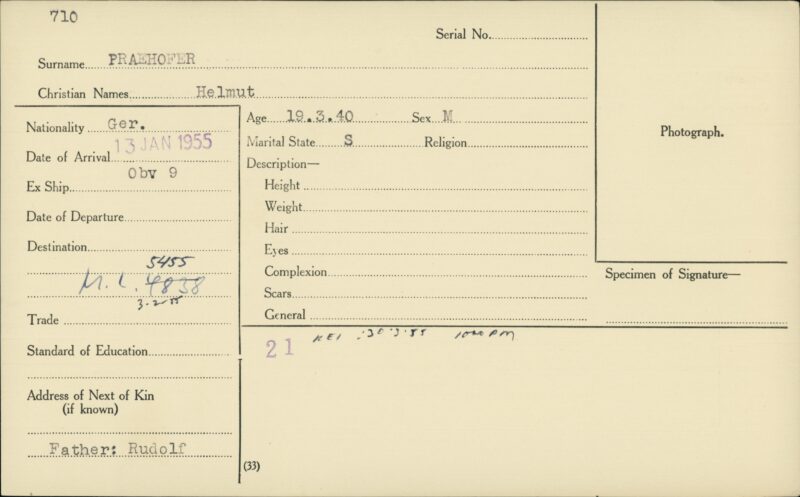 710
Serial No.
Surname PRAEHOFER
Christian Names Helmut
Nationality Ger.
Date of Arrival 13 JAN 1955
Obv 9
Ex Ship
Date of Departure
Destination
5455
M. L. 4838
3-2-55
Trade
Standard of Education
Address of Next of Kin
(if known)
Father: Rudolf
Age 19.3.40 Sex M
Marital State S Religion
Description—
Height
Weight
Hair
Eyes
Complexion
Scars
General
21 30.3.55
(33)
Photograph.
Specimen of Signature—